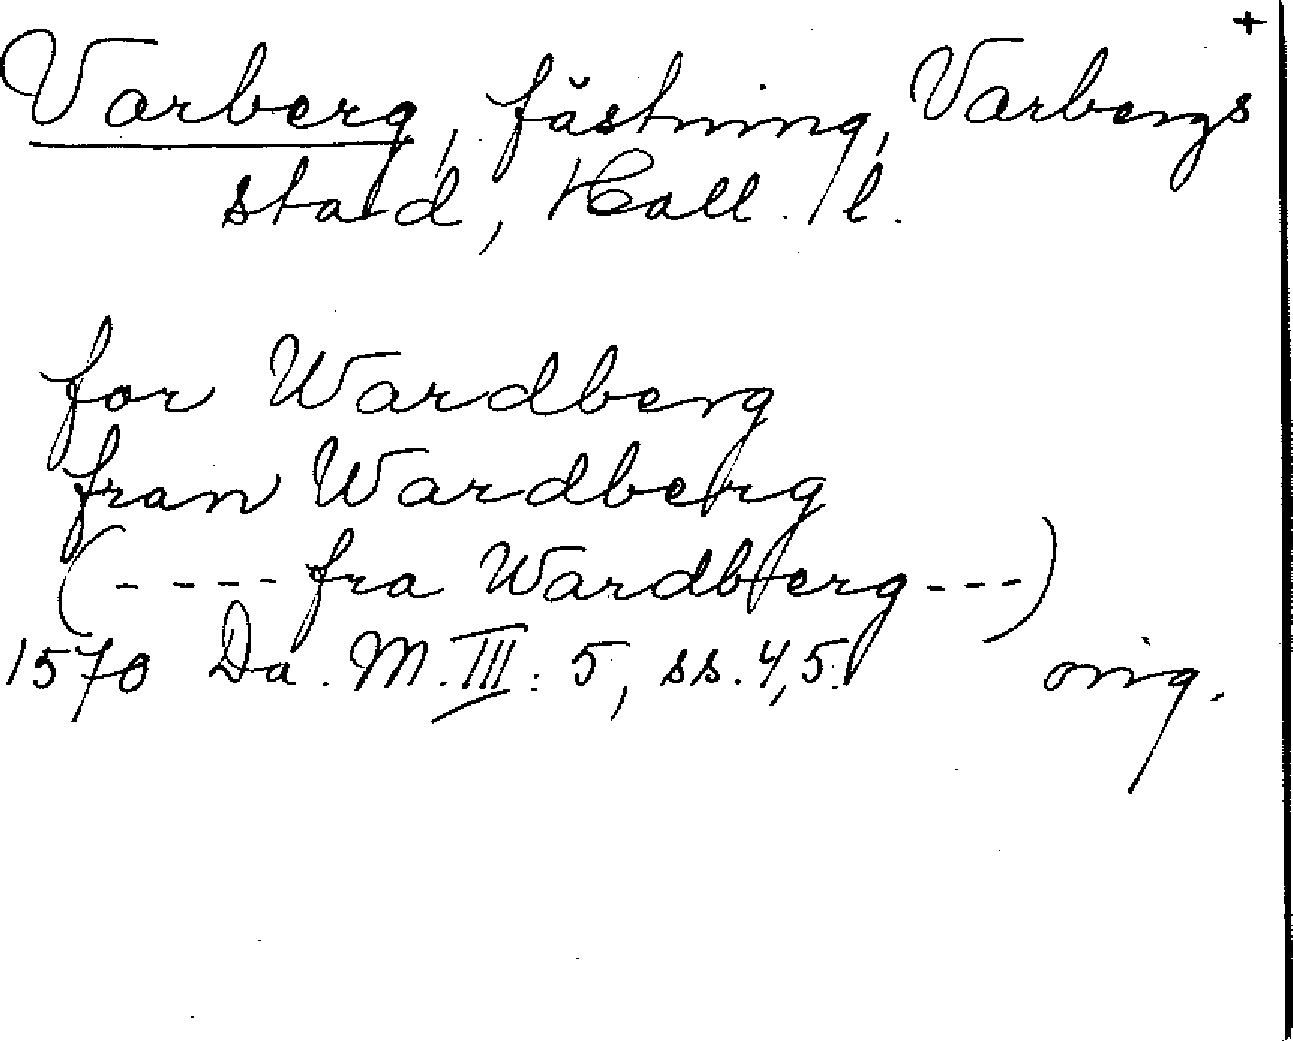 +
Varberg, fästning, Varbergs
stad, Hall. l.
for Wardberg
fran Wardberg
(---- fra Wardberg ---)
1570 Da. M. III: 5, ss. 4, 5. orig.